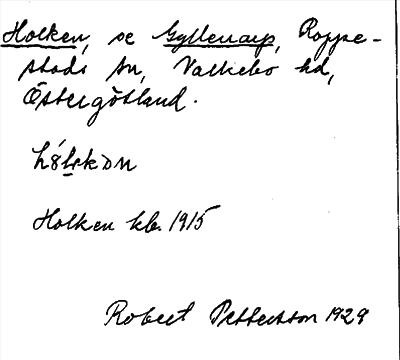 Holken, se Gyllenarp, Rappe-
stads sn, Valkebo hd,
Östergötland.
Holken kb. 1915
Robert Pettersson 1929